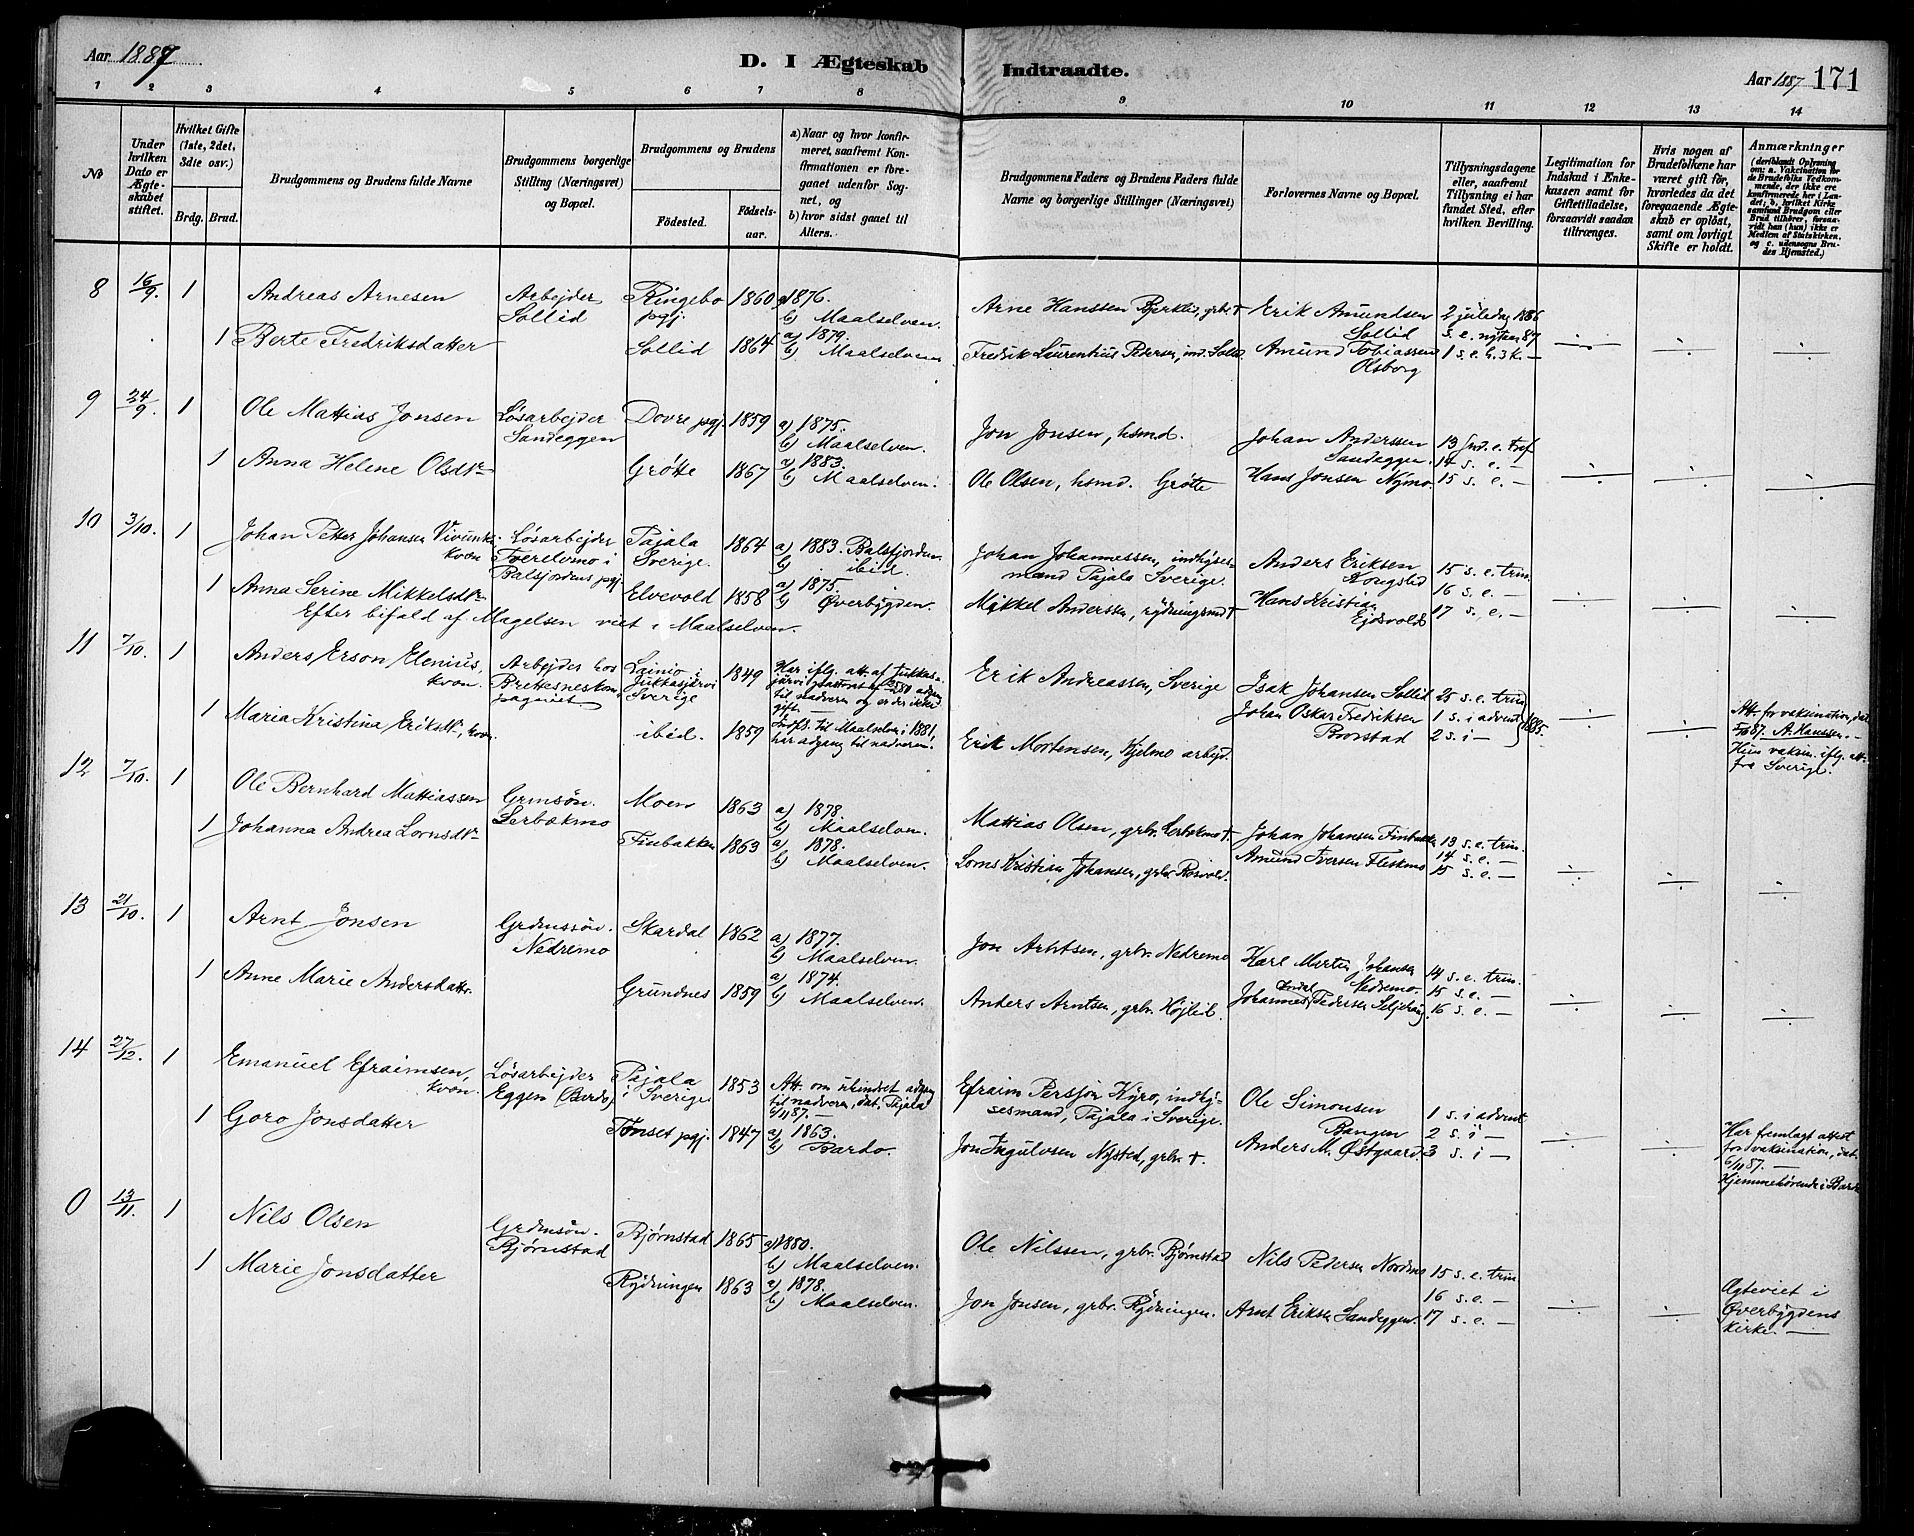 Aar 1887
D. I Ægteskab Indtraadte.
Aar 1887 171
1 2 3 4 5 6 7 8 9 10 11 12 13 14
No
Under hvilken Dato er Ægteskabet stiftet.
Hvilket Gifte (1ste, 2det, 3die osv.)
Brdg. Brud.
Brudgommens og Brudens fulde Navne
Brudgommens borgerlige Stilling (Næringsvei) og Bopæl.
Brudgommens og Brudens
Födested.
Födselsaar.
a) Naar og hvor konfirmeret, saafremt Konfirmationen er foregaaet udenfor Sognet, og
b) hvor sidst gaaet til Alters.
Brudgommens Faders og Brudens Faders fulde Navne og borgerlige Stillinger (Næringsvei)
Forlovernes Navne og Bopæl.
Tillysningsdagene eller, saafremt Tillysning ei har fundet Sted, efter hvilken Bevilling.
Legitimation for Indskud i Enkekassen samt for Giftetilladelse, forsaavidt saadan tiltrænges.
Hvis nogen af Brudefolkene har været gift för, hvorledes da det foregaaende Ægteskab er oplöst, samt om lovligt Skifte er holdt.
Anmærkninger
(deriblandt Oplysning om: a. Vakcination for de Brudefolks Vedkommende, der ikke ere konfirmerede her i Landet; b. hvilket Kirkesamfund Brudgom eller Brud tilhörer, forsaavidt han (hun) ikke er Medlem af Statskirken, og c. udensogns Brudes Hjemsted.)
8 16/9. 1 Andreas Arnesen Arbejder Sollid Ringebo pgj. 1860 a) 1876. b) Maalselven. Arne Hanssen Bjerklid, grbr. † Erik Amundsen Sollid 2 juledag 1886 s. e. nytaar 87
1 Berte Fredriksdatter Sollid 1864 a) 1879. b) Maalselven Fredrik Laurentius Petersen, ind. Sollid Amund Tobiassen Olsborg 1 s. e. h. 3 k. —
9 24/9. 1 Ole Mattias Jonsen Løsarbejder Sandeggen Dovre pgj. 1859 a) 1875. b) Maalselven. Jon Jonsen, hsmd. Johan Anderssen Sandeggen. 13 snd. e. tref 14 s. e. —
1 Anna Helene Olsdtr Grötte 1867 a) 1883. b) Maalselven. Ole Olsen, hsmd. Grötte Hans Jonsen Nymo. 15 s. e. —
10 3/10. 1 Johan Petter Johansen kvæn Løsarbejder Tverelvmo i Balsfjordens pgj. Pajala Sverige. 1864 a) 1883. Balsfjorden b) ibid. Johan Johannessen, indhysesmand Pajala Sverige. Anders Eriksen Kongslid 15 s. e. trin. 16 s. e. —
1 Anna Serine Mikkelsdtr Elvevold 1858 a) 1875. b) Øverbygden. Mikkel Anderssen, rydningsmd † Hans Kristian Ejdsvold 17 s. e. —
Efter bifald af Magelsen viet i Maalselven.
11 7/10. 1 Anders Erson Elenius, kvæn. Arbejder hos Sainio i Jukkasjærvi Sverige 1849 Har iflg. att. af Jukkasjärvi adgang til nadveren og er der ikke gift. — Erik Andreassen, Sverige Isak Johansen Sollid 25 s. e. trin
1 Maria Kristina Eriksdtr, kvæn ibid. 1859 Indfl. til Maalselven i 1881, har adgang til nadveren. Erik Mortensen, Kjelmo arbejd. Johan Oskar Fredriksen 1 s. i advent 2 s. i — } 1885. Att. for vaksination, dat. 5/9 87. A. Hanssen. — Hun vaksin. iflg. att. fra Sverige.
12 7/10. 1 Ole Bernhard Mattiassen Grmsøn. Lerbækmo Moen 1863 a) 1878. b) Maalselven. Mattias Olsen, grbr. Lerbækmo † Johan Johansen Finbakken 13 s. e. trin. 14 s. e. —
1 Johanna Andrea Lornsdtr Finbakken 1863 a) 1878. b) Maalselven. Lorns Kristian Johansen, grbr. Rosvold. Amund Iversen Fleskmo 15 s. e. —
13 21/10. 1 Arnt Jonsen Grdmssøn. Nedremo Skardal 1862 a) 1877. b) Maalselven. Jon Arntsen, grbr. Nedremo Karl Martin Johansen Nedremo. 14 s. e. trin. 15 s. e. —
1 Anne Marie Andersdattr. Grundnes 1859 a) 1874. b) Maalselven. Anders Arntsen, grbr. Højlid. Johannes Pedersen 16 s. e. —
14 27/12. 1 Emanuel Efraimsen, kvæn. Løsarbejder Eggen (Bardo) Pajala i Sverige 1853 Att. om uhindret adgang til nadveren, dat. Pajala 6/11 87. — Efraim Persson Kyrö, indhysesmand, Pajala i Sverige. Ole Simonsen Bangen 1 s. i advent 2 s. i —
1 Goro Jonsdatter Tønset pgj. 1847 a) 1863. b) Bardo. Jon Ingulvsen Nysted, grbr. †. Anders M. Østgaard. 3 s. i — Har fremlagt attest for vaksination, dat. 6/11 87. — Hjemmehörende i Bardo
0 13/11. 1 Nils Olsen Grdmsøn. Bjørnstad Bjørnstad 1865 a) 1880. b) Maalselven. Ole Nilssen, grbr. Bjørnstad Nils Pedersen Nordmo 15 s. e. trin 16 s. e. —
1 Marie Jonsdatter Rydningen 1863 a) 1878. b) Maalselven. Jon Jonsen, grbr. Rydningen. Arnt Eriksen Sandeggen. 17 s. e. — Ægteviet i Øverbygdens kirke. —